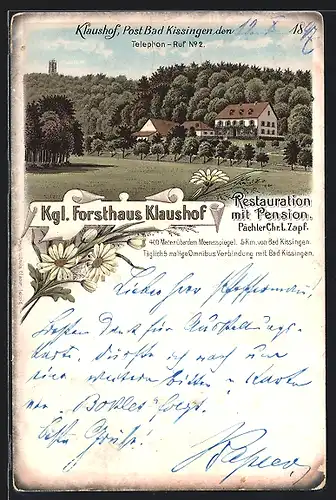 Klaushof, Post Bad Kissingen, den 12. 18
Telephon-Ruf Nº 2.
Kgl. Forsthaus Klaushof
Restauration
mit Pension,
Pächter Chr. L. Zapf.
400 Meter über dem Meeresspiegel. 5 Km. von Bad Kissingen.
Täglich 5 malige Omnibus Verbindung mit Bad Kissingen.
Lieber Herr
Besten Dank für Ausstellungs-
karte. Dürfte ich noch um
eine weitere bitten
von
beste Grüße!